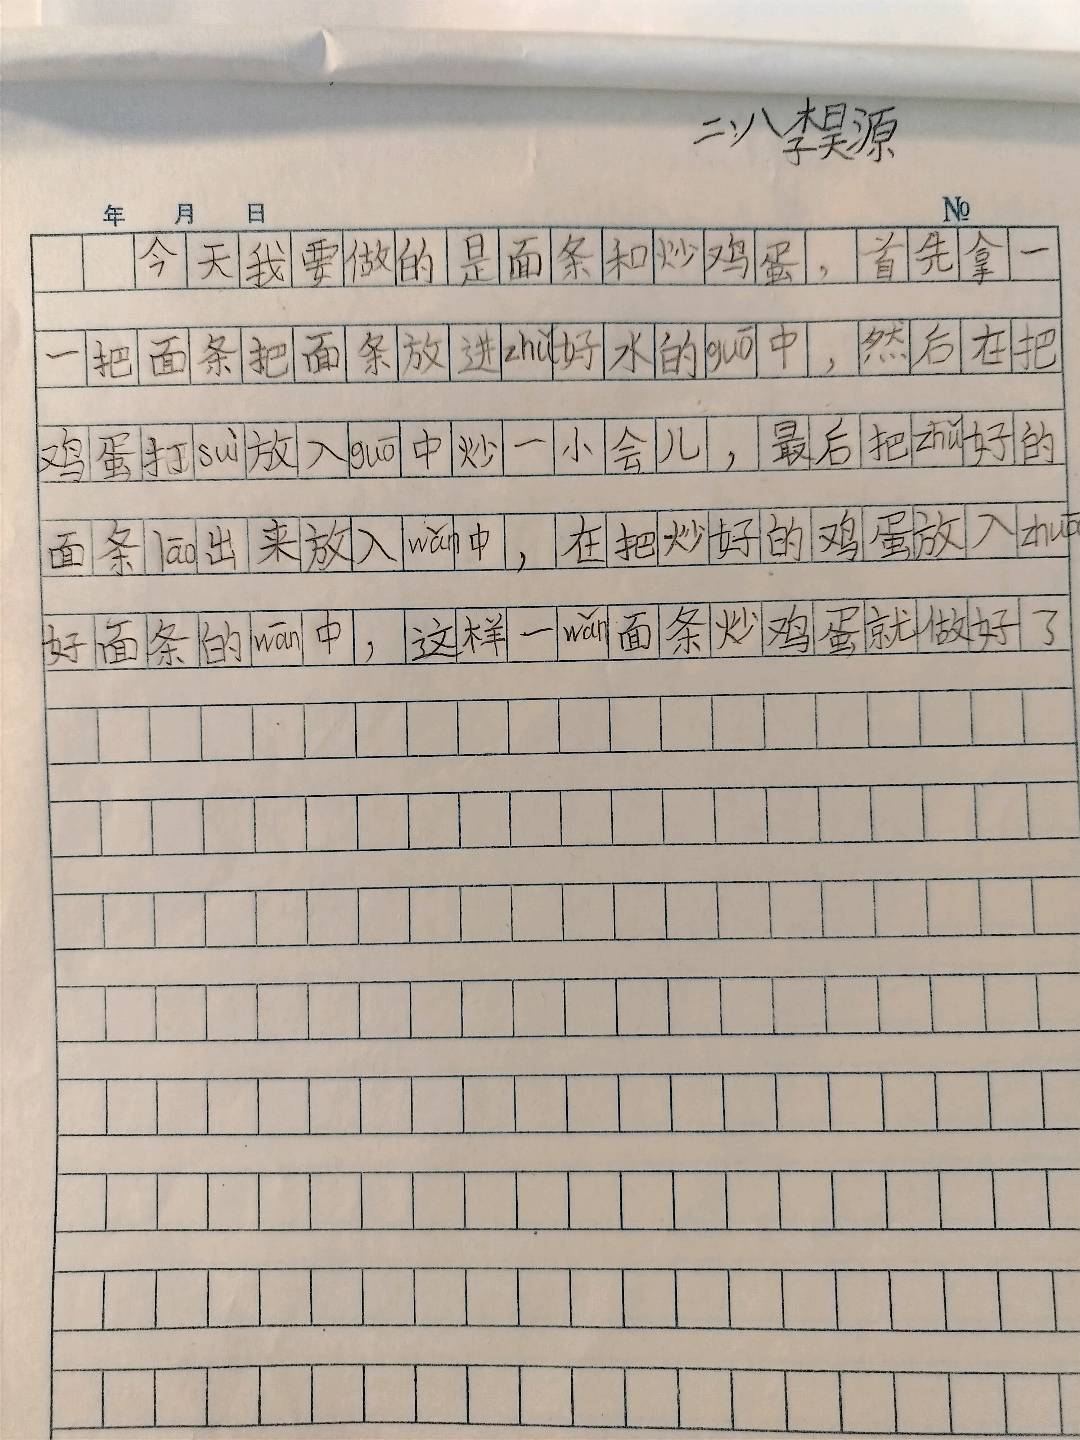 二八李昊源
年 月 日 №
今天我要做的是面条和炒鸡蛋,首先拿一
一把面条把面条放进zhǔ好水的guō中,然后在把
鸡蛋打suì放入guō中炒一小会儿,最后把zhǔ好的
面条lāo出来放入wǎn中,在把炒好的鸡蛋放入zhuāng
好面条的wān中,这样一wǎn面条炒鸡蛋就做好了